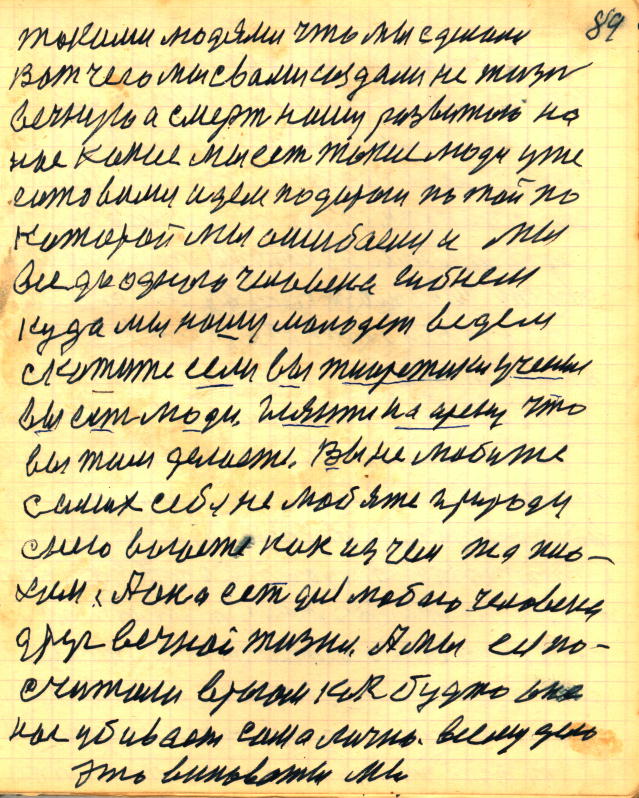 89
такими людями что мы сделали
вот чего мы с вами создали не жизн
вечную а смерт нашу развитою на
нас какие мы ест такие люди уже
готовыми идем по дороги по той по
которой мы ошибаемся мы
все до одного человека гибнем
куда мы нашу молодеж ведем
скажите если вы тиоретики ученыи
вы ест люди. Гляньти на арену что
вы там делаете. Вы не любите
самих себя не любяте природу
с него воюете как из чем то пло-
хим. А она ест для любого человека
друг вечной жизни. А мы ее по-
считали врагом как будто она
нас убивает сама лично. всему дело
это виноваты мы